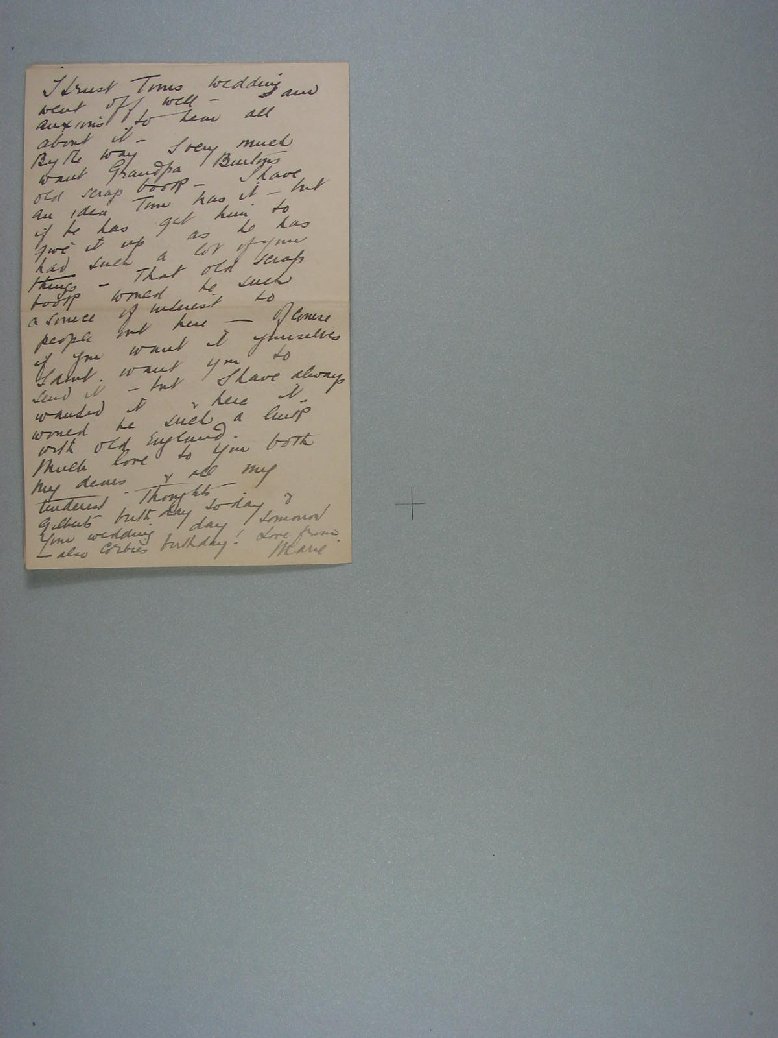 I trust Toms wedding
went off well – I am
anxious to hear all
about it –
By the way I very much
want Grandpa Burtons
old scrap book – I have
an idea Tom has it – but
if he has get him to
give it up as he has
had such a lot of your
things – That old scrap
book would be such
a source of interest to
people out here – Of course
if you want it yourselves
I dont want you to
send it – but I have always
wanted it & here it
would be such a link
with old England.
Much love to you both
my dears & all my
tenderest thoughts –
Gilberts birthday today &
your wedding day tomorrow
– also Corbies birthday! Love from
Marie